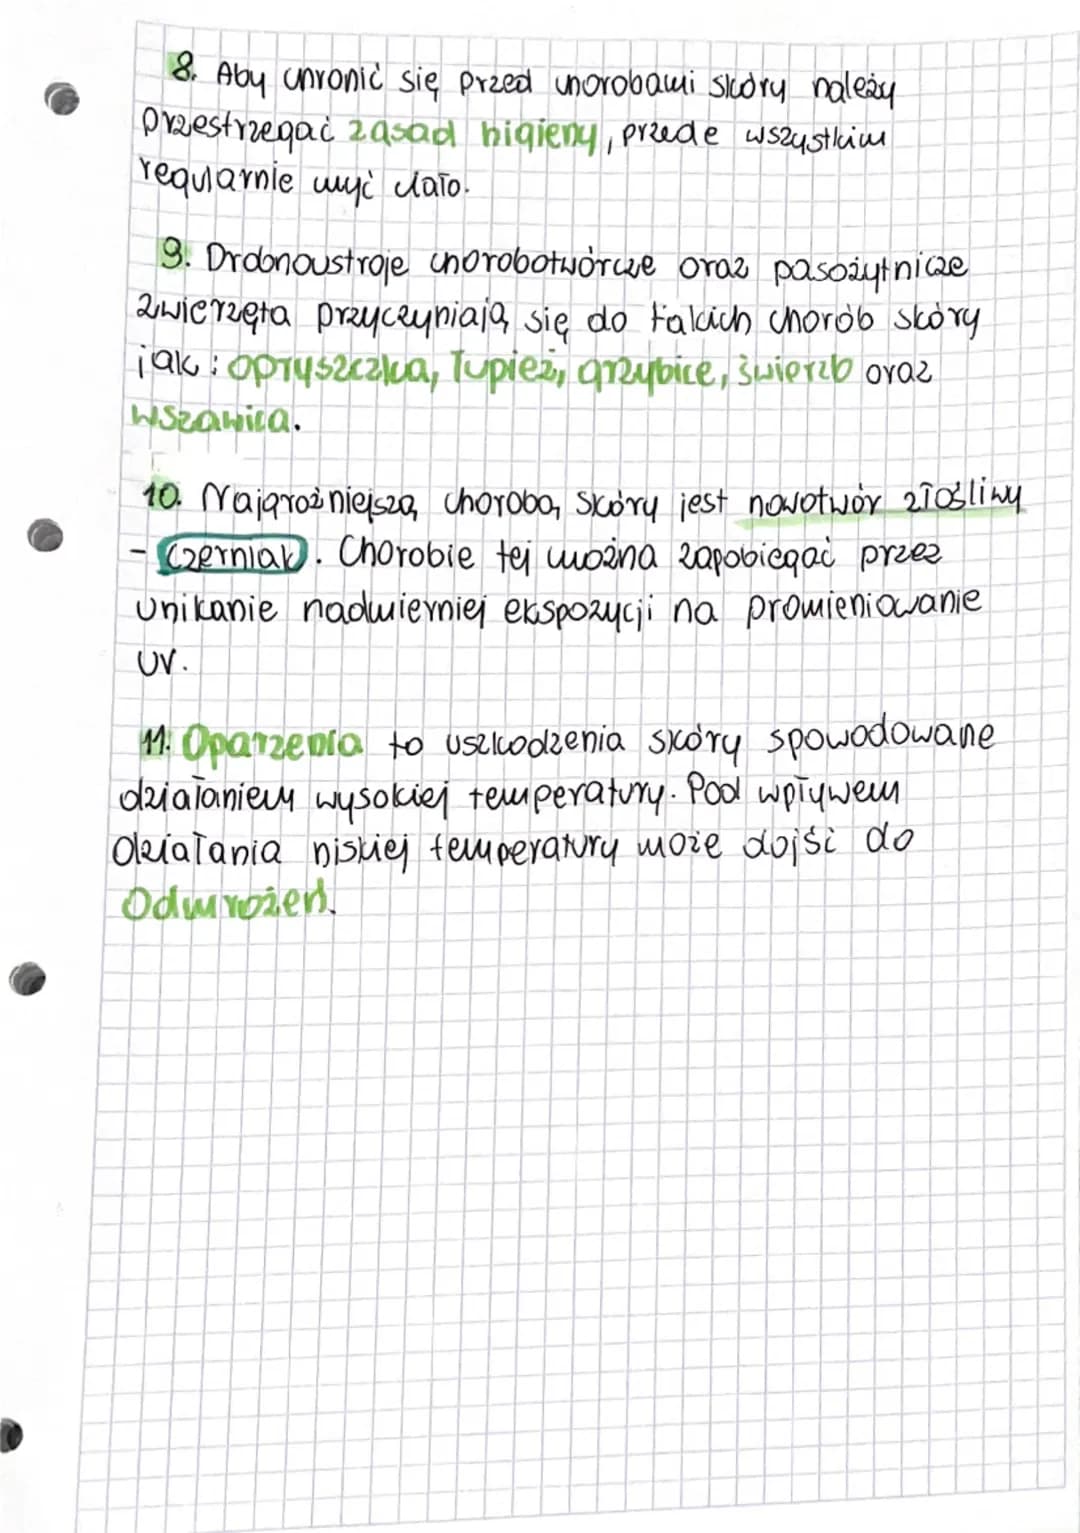 8. Aby chronić się przed chorobami skóry należy
przestrzegać zasad higieny, przede wszystkim
regularnie myć ciało.
9. Drobnoustroje chorobotwórcze oraz pasożytnicze
zwierzęta przyczyniają się do takich chorób skóry
jak: opryszczka, łupież, grzybice, świerzb oraz
wszawica.
10. Najgroźniejszą chorobą skóry jest nowotwór złośliwy
- czerniak. Chorobie tej można zapobiegać przez
unikanie nadmierniej ekspozycji na promieniowanie
UV.
11. Oparzenia to uszkodzenia skóry spowodowane
działaniem wysokiej temperatury. Pod wpływem
działania niskiej temperatury może dojść do
Odmrożeń.